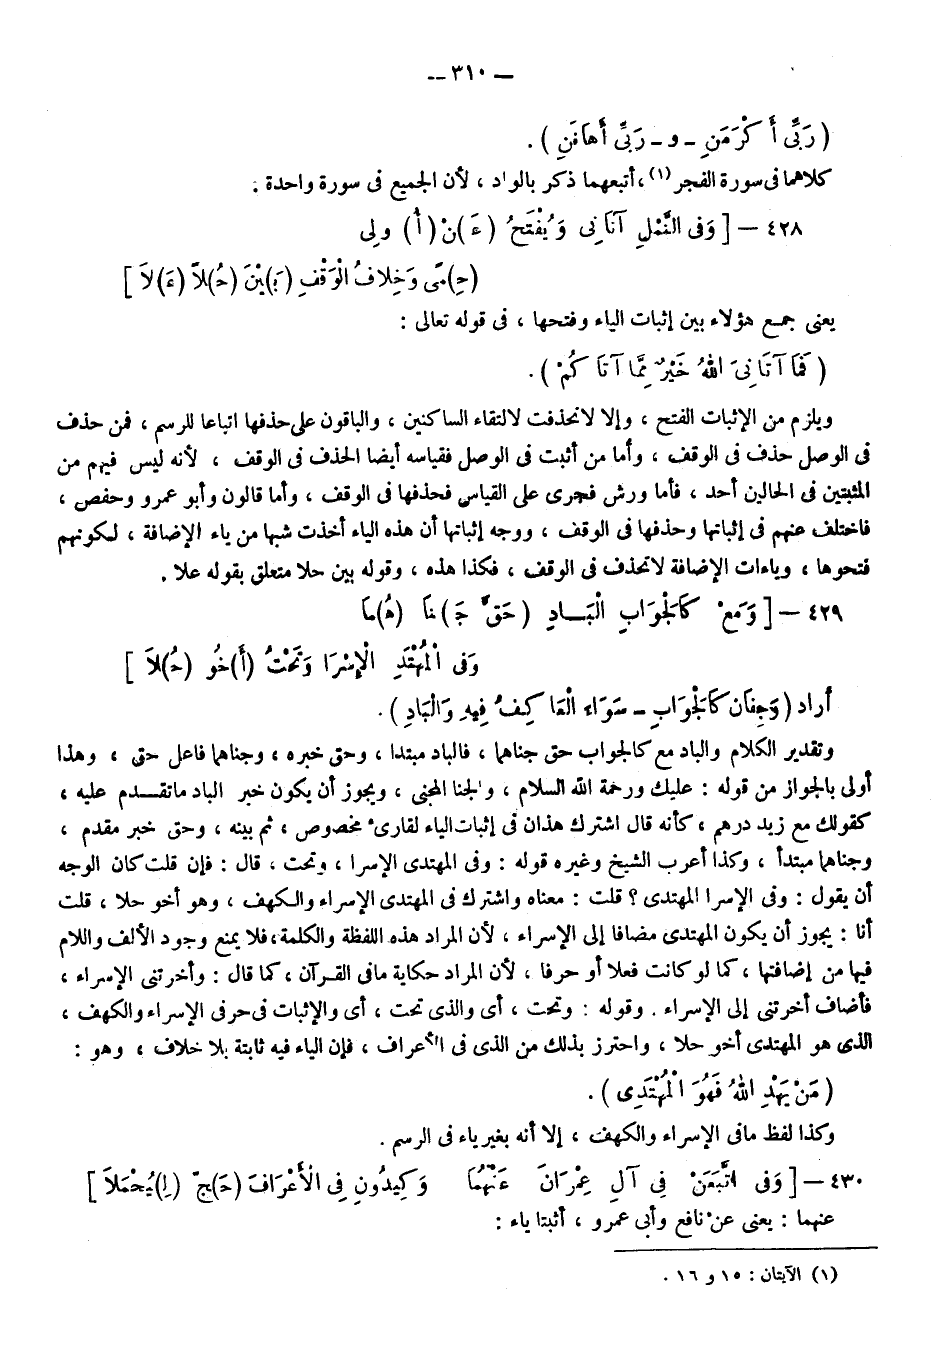 — ٣١٠ —
( رَبِّى أَكْرَمَنِ ـ و ـ رَبِّى أَهَانَنِ ) .
كلاهما فى سورة الفجر (١) ، أتبعهما ذكر بالواد ، لأن الجميع فى سورة واحدة .
٤٢٨ — [ وَفى النَّمْلِ آتَانِى وَيُفْتَحُ (عَ)نْ (أُ) ولِى
(حِ)مًى وَخِلافُ الْوَقْفِ (بَـ)ـيْنَ (حُـ)ـلاً (عَ)لَا ]
يعنى جمع هؤلاء بين إثبات الياء وفتحها ، فى قوله تعالى :
( فَمَا آتَانِىَ اللهُ خَيْرٌ مِمَّا آتَاكُمْ ) .
ويلزم من الإثبات الفتح ، وإلا لانحذفت لالتقاء الساكنين ، والباقون على حذفها اتباعا للرسم ، فمن حذف
فى الوصل حذف فى الوقف ، وأما من أثبت فى الوصل فقياسه أيضا الحذف فى الوقف ، لأنه ليس فيهم من
المثبتين فى الحالين أحد ، فأما ورش فجرى على القياس فحذفها فى الوقف ، وأما قالون وأبو عمرو وحفص ،
فاختلف عنهم فى إثباتها وحذفها فى الوقف ، ووجه إثباتها أن هذه الياء أخذت شبها من ياء الإضافة ، لكونهم
فتحوها ، وياءات الإضافة لاتحذف فى الوقف ، فكذا هذه ، وقوله بين حلا متعلق بقوله علا .
٤٢٩ — [ وَمَعْ كَالْجَوَابِ الْبَادِ (حَقٌّ جَـ)ـنَا (هُـ)ـمَا
وَفى الْمُهْتَدِ الْإِسْرَا وَتَحْتُ (أَ)خُو (حُـ)ـلَا ]
أراد ( وَجِفَانٍ كَالْجَوَابِ ـ سَوَاءً الْعَاكِفُ فِيهِ وَالْبَادِ ) .
وتقدير الكلام والباد مع كالجواب حق جناهما ، فالباد مبتدا ، وحق خبره ، وجناهما فاعل حق ، وهذا
أولى بالجواز من قوله : عليك ورحمة الله السلام ، والجنا المجنى ، ويجوز أن يكون خبر الباد ماتقـدم عليه ،
كقولك مع زيد درهم ، كأنه قال اشترك هذان فى إثبات الياء لقارىء مخصوص ، ثم بينه ، وحق خبر مقدم ،
وجناهما مبتدأ ، وكذا أعرب الشيخ وغيره قوله : وفى المهتدى الإسرا ، وتحت ، قال : فإن قلت كان الوجه
أن يقول : وفى الإسرا المهتدى ؟ قلت : معناه واشترك فى المهتدى الإسراء والكهف ، وهو أخو حلا ، قلت
أنا : يجوز أن يكون المهتدى مضافا إلى الإسراء ، لأن المراد هذه اللفظة والكلمة ، فلا يمنع وجود الألف واللام
فيها من إضافتها ، كما لو كانت فعلا أو حرفا ، لأن المراد حكاية مافى القرآن ، كما قال : وأخرتنى الإسراء ،
فأضاف أخرتنى إلى الإسراء . وقوله : وتحت ، أى والذى تحت ، أى والإثبات فى حرفى الإسراء والكهف ،
الذى هو المهتدى أخو حلا ، واحترز بذلك من الذى فى الأعراف ، فإن الياء فيه ثابتة بلا خلاف ، وهو :
( مَنْ يَهْدِ اللهُ فَهُوَ الْمُهْتَدِى ) .
وكذا لفظ مافى الإسراء والكهف ، إلا أنه بغير ياء فى الرسم .
٤٣٠ — [ وَفى اتَّبَعَنْ فِى آلِ عِمْرَانَ عَنْهُمَا وَكِيدُونِ فِى الْأَعْرَافَ (حَـ)ـجَّ (لِـ)ـيُحْمَلَا ]
عنهما : يعنى عن نافع وأبى عمرو ، أثبتا ياء :
(١) الآيتان : ١٥ و ١٦ .